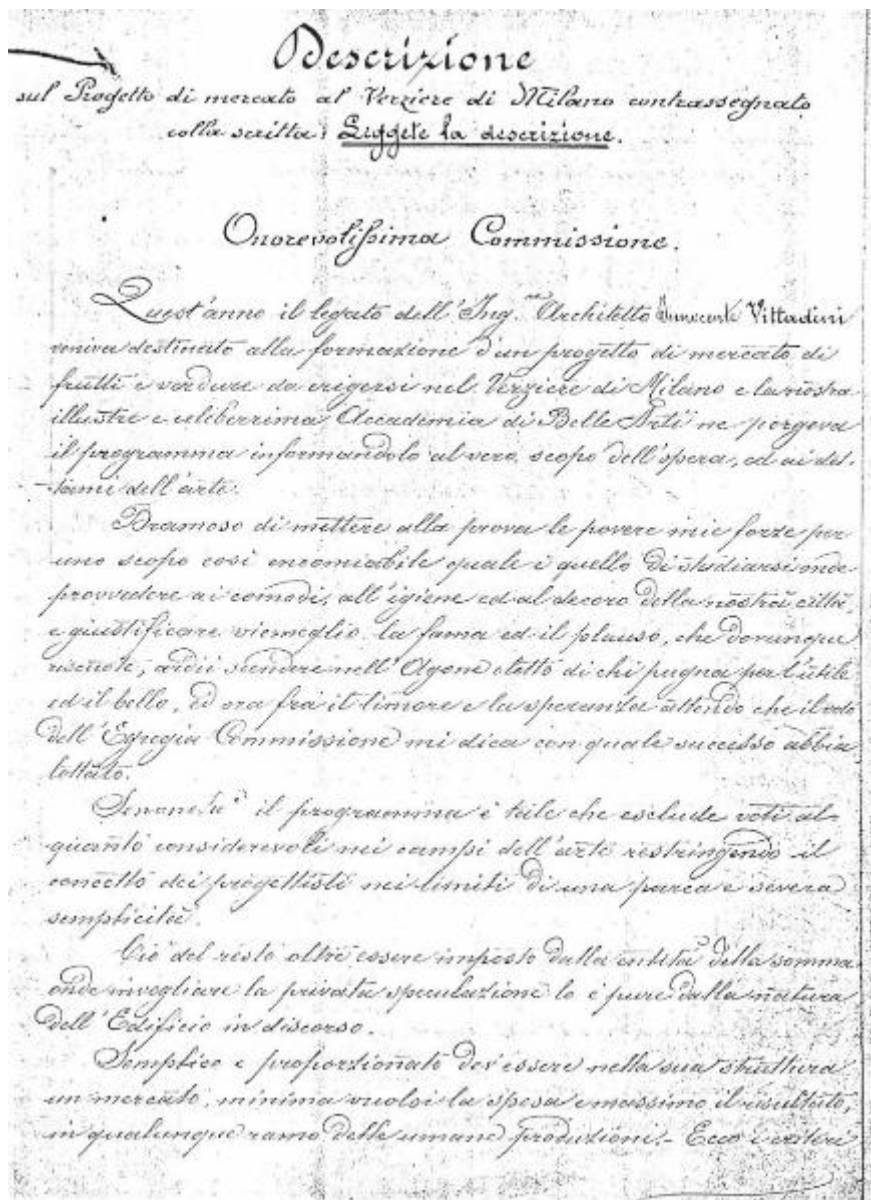 Descrizione
sul Progetto di mercato al Verziere di Milano contrassegnato
colla scritta: Leggete la descrizione.
Onorevolissima Commissione.
Quest'anno il legato dell'Ing.re Architetto Innocente Vittadini
veniva destinato alla formazione d'un progetto di mercato di
frutti e verdure da erigersi nel Verziere di Milano e la nostra
illustre e celiberrima Accademia di Belle Arti ne porgeva
il programma informandolo al vero scopo dell'opera, ed ai det-
-tami dell'arte.
Bramoso di mettere alla prova le povere mie forze per
uno scopo così encomiabile quale è quello di studiarsi onde
provvedere ai comodi, all'igiene ed al decoro della nostra città,
e giustificare viemeglio la fama ed il plauso, che dovunque
riscuote, ardii scendere nell'Agone eletto di chi pugna per l'utile
ed il bello, ed ora fra il timore e la speranza attendo che il voto
dell'Egregia Commissione mi dica con quale successo abbia
lottato.
il programma è tale che esclude voli al-
quanto considerevoli nei campi dell'arte restringendo il
concetto dei progettisti nei limiti di una parca e severa
semplicità.
Ciò del resto oltre essere imposto dalla entità della somma
onde invogliare la privata speculazione lo è pure dalla natura
dell'Edificio in discorso.
Semplice e proporzionato dev'essere nella sua struttura
un mercato, minima vuolsi la spesa e massimo il risultato,
in qualunque ramo delle umane produzioni. - Ecco i criteri